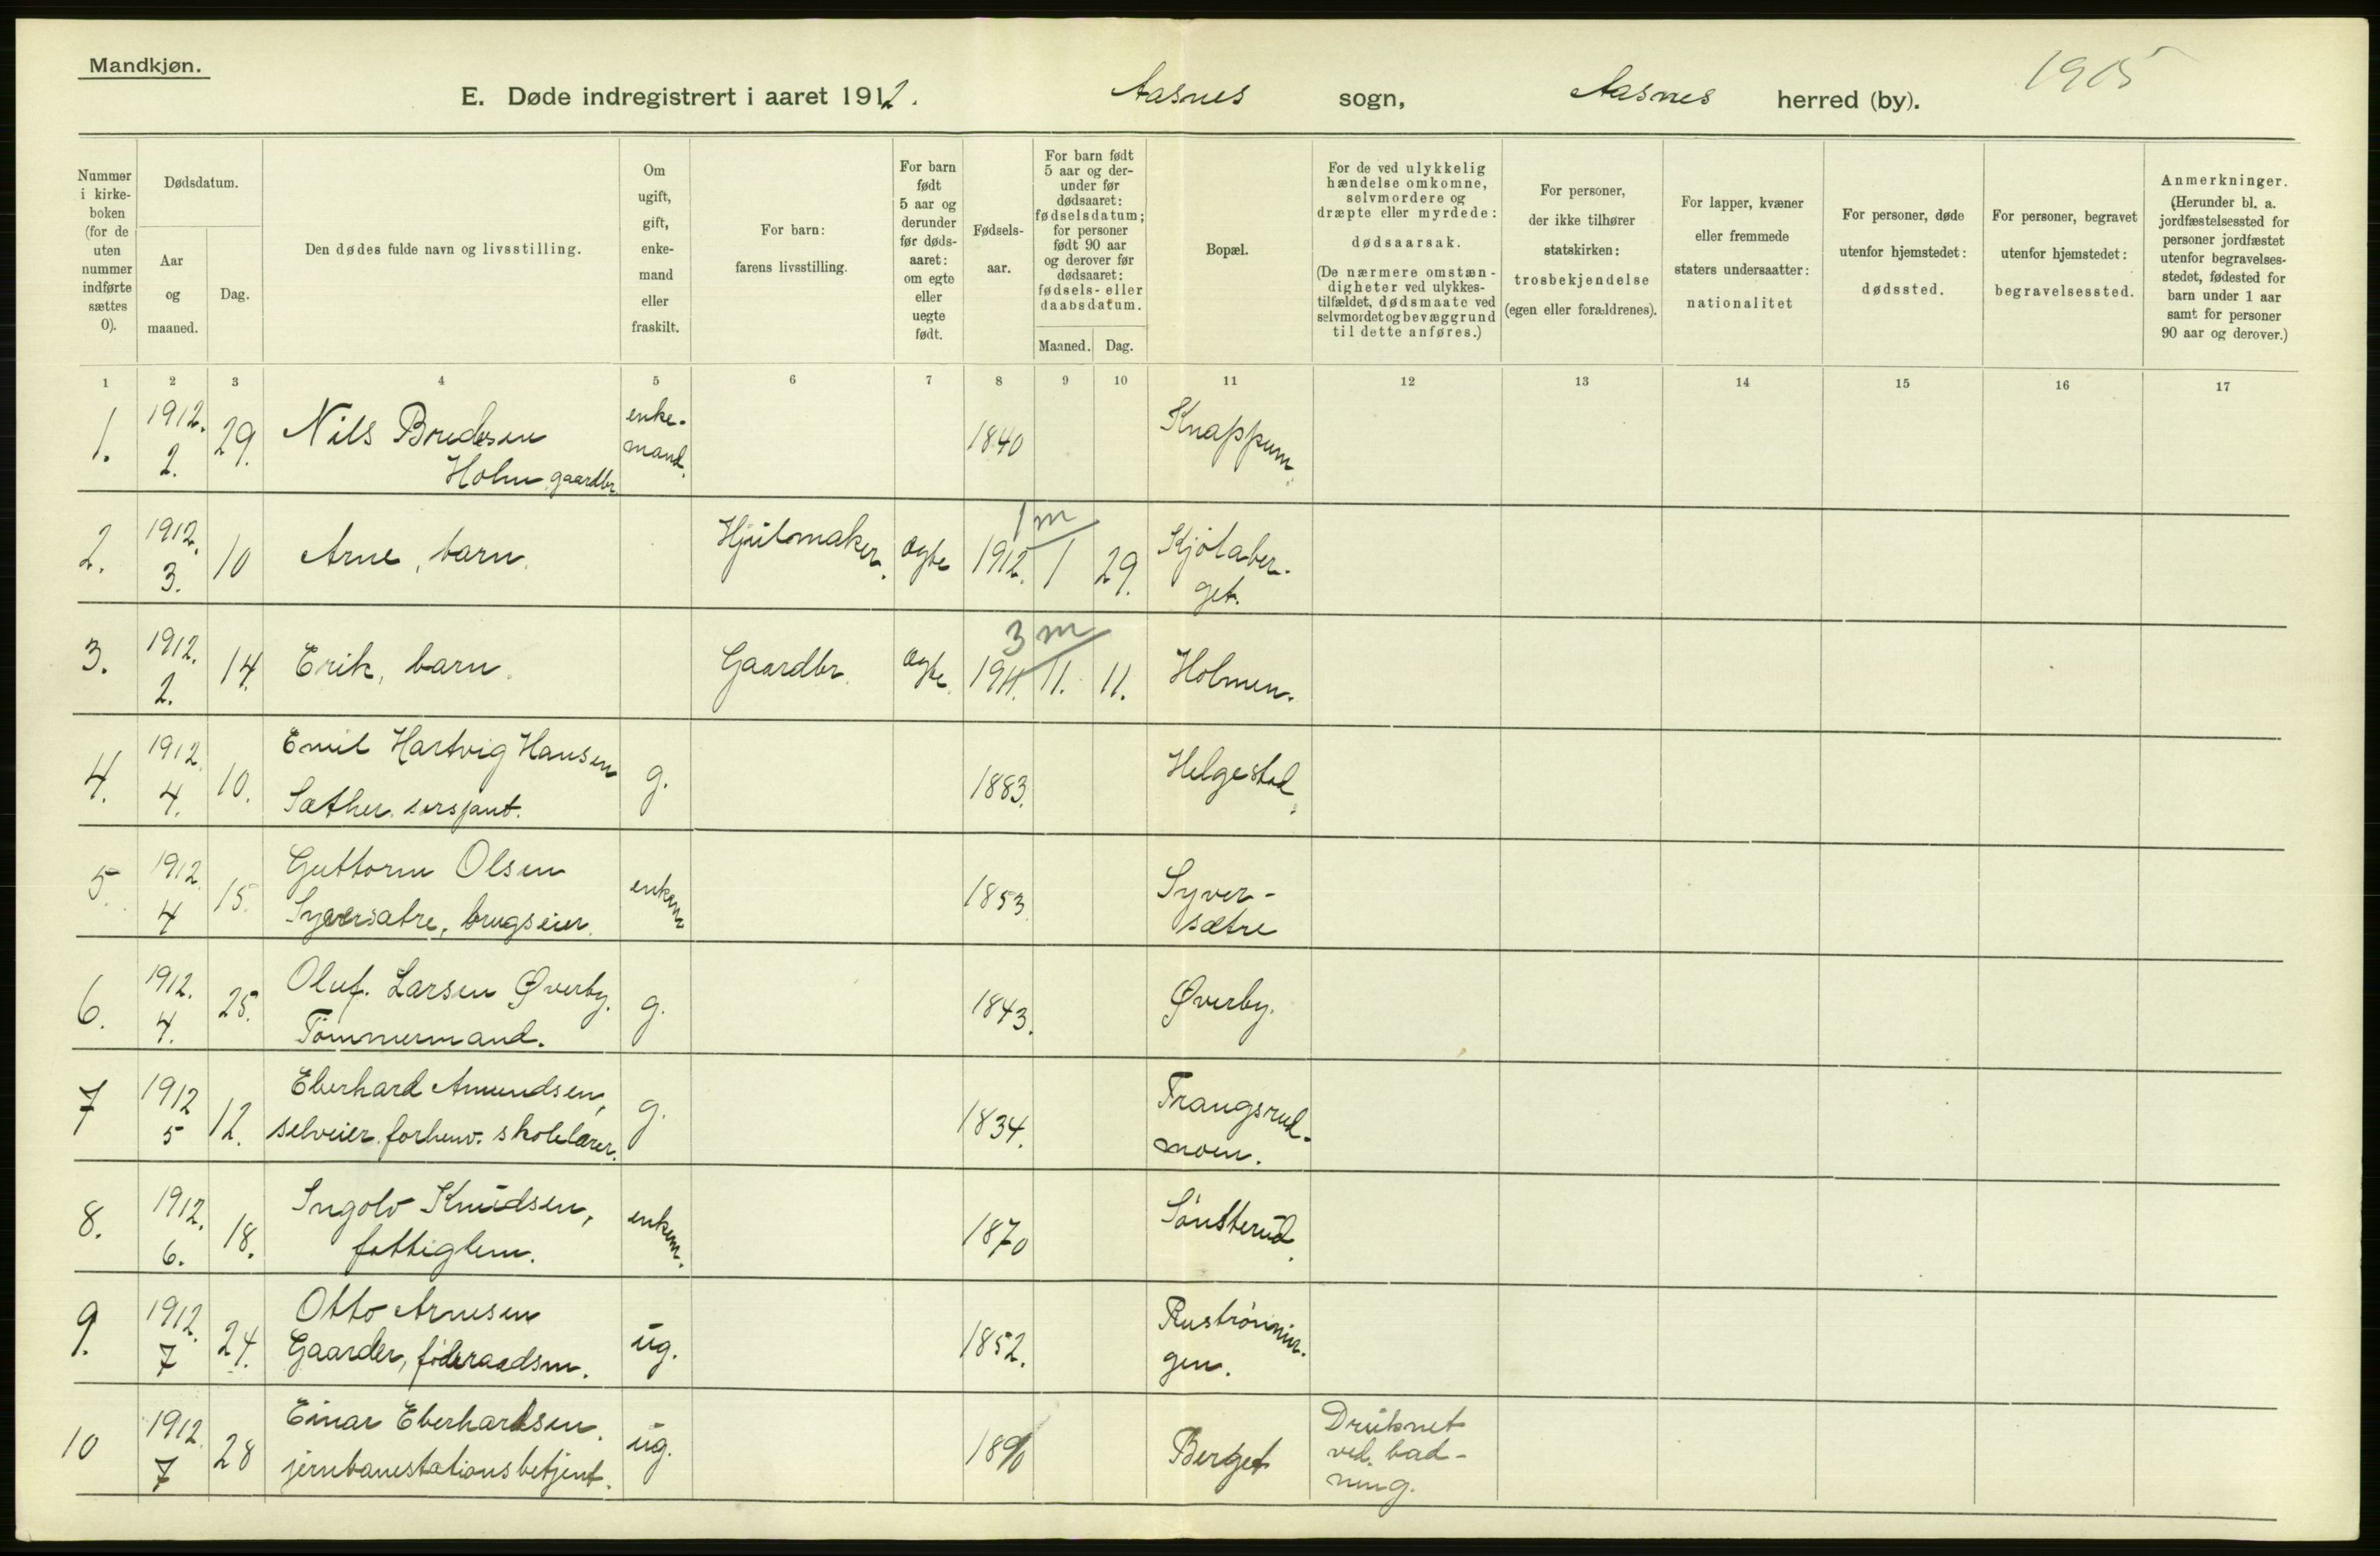 Mandkjøn.
1905
E. Døde indregistrert i aaret 1912. Aasnes sogn, Aasnes herred (by).
Nummer i kirke-boken (for de uten nummer indførte sættes 0).
Dødsdatum.
Aar og maaned.
Dag.
Den dødes fulde navn og livsstilling.
Om ugift, gift, enke-mand eller fraskilt.
For barn: farens livsstilling.
For barn født 5 aar og derunder før døds-aaret: om egte eller uegte født.
Fødsels-aar.
For barn født 5 aar og der-under før dødsaaret: fødselsdatum; for personer født 90 aar og derover før dødsaaret: fødsels- eller daabsdatum.
Maaned. Dag.
Bopæl.
For de ved ulykkelig hændelse omkomne, selvmordere og dræpte eller myrdede: dødsaarsak. (De nærmere omstæn-digheter ved ulykkes-tilfældet, dødsmaate ved selvmordet og bevæggrund til dette anføres.)
For personer, der ikke tilhører statskirken: trosbekjendelse (egen eller forældrenes).
For lapper, kvæner eller fremmede staters undersaatter: nationalitet
For personer, døde utenfor hjemstedet: dødssted.
For personer, begravet utenfor hjemstedet: begravelsessted.
Anmerkninger. (Herunder bl. a. jordfæstelsessted for personer jordfæstet utenfor begravelses-stedet, fødested for barn under 1 aar samt for personer 90 aar og derover.)
1 2 3 4 5 6 7 8 9 10 11 12 13 14 15 16 17
1. 1912. 2. 29. Nils Bredesen Holm, gaardbr. enke-mand. 1840 Knappum.
2. 1912. 3. 10 Arne, barn. Hjulmaker. ægte 1912. 1 29. 1 m Kjølaber-get.
3. 1912. 2. 14. Erik, barn. Gaardbr. ægte 1911. 11. 11. 3 m Holmen.
4. 1912 4. 10. Emil Hartvig Hansen Sæther. sersjant. g. 1883. Helgestad.
5. 1912 4 15. Guttorm Olsen Syversætre, brugseier. enkem 1853 Syver-sætre
6. 1912. 4. 25. Oluf Larsen Øverby. Tømmermand. g. 1843. Øverby.
7 1912 5 12. Eberhard Amundsen, selveier. forhenv. skolelærer. g. 1834. Trangsrud-moen.
8. 1912. 6. 18. Ingolv Knudsen, fattiglem. enkem. 1870 Sønsterud.
9. 1912. 7 24. Otto Arnesen Gaarder, føderaadsm. ug. 1852. Rustrønnin-gen.
10 1912. 7 28 Einar Eberhardsen. jernbanestationsbetjent. ug. Berget Druknet ved bad-ning.